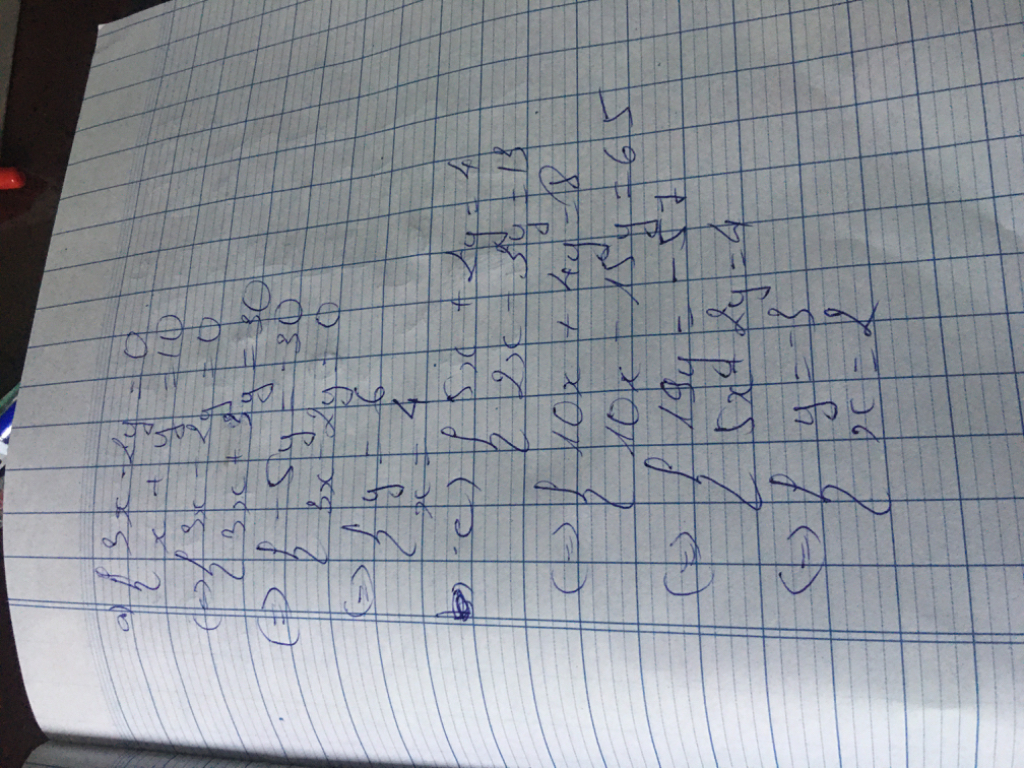 a) { 3x - 2y = 0
x + y = 10
(=) { 3x - 2y = 0
3x + 3y = 30
(=) { -5y = -30
3x - 2y = 0
(=) { y = 6
x = 4
c) { 5x + 2y = 4
2x - 3y = 13
(=) { 10x + 4y = 8
10x - 15y = 65
(=) { 19y = -57
5x + 2y = 4
(=) { y = -3
x = 2